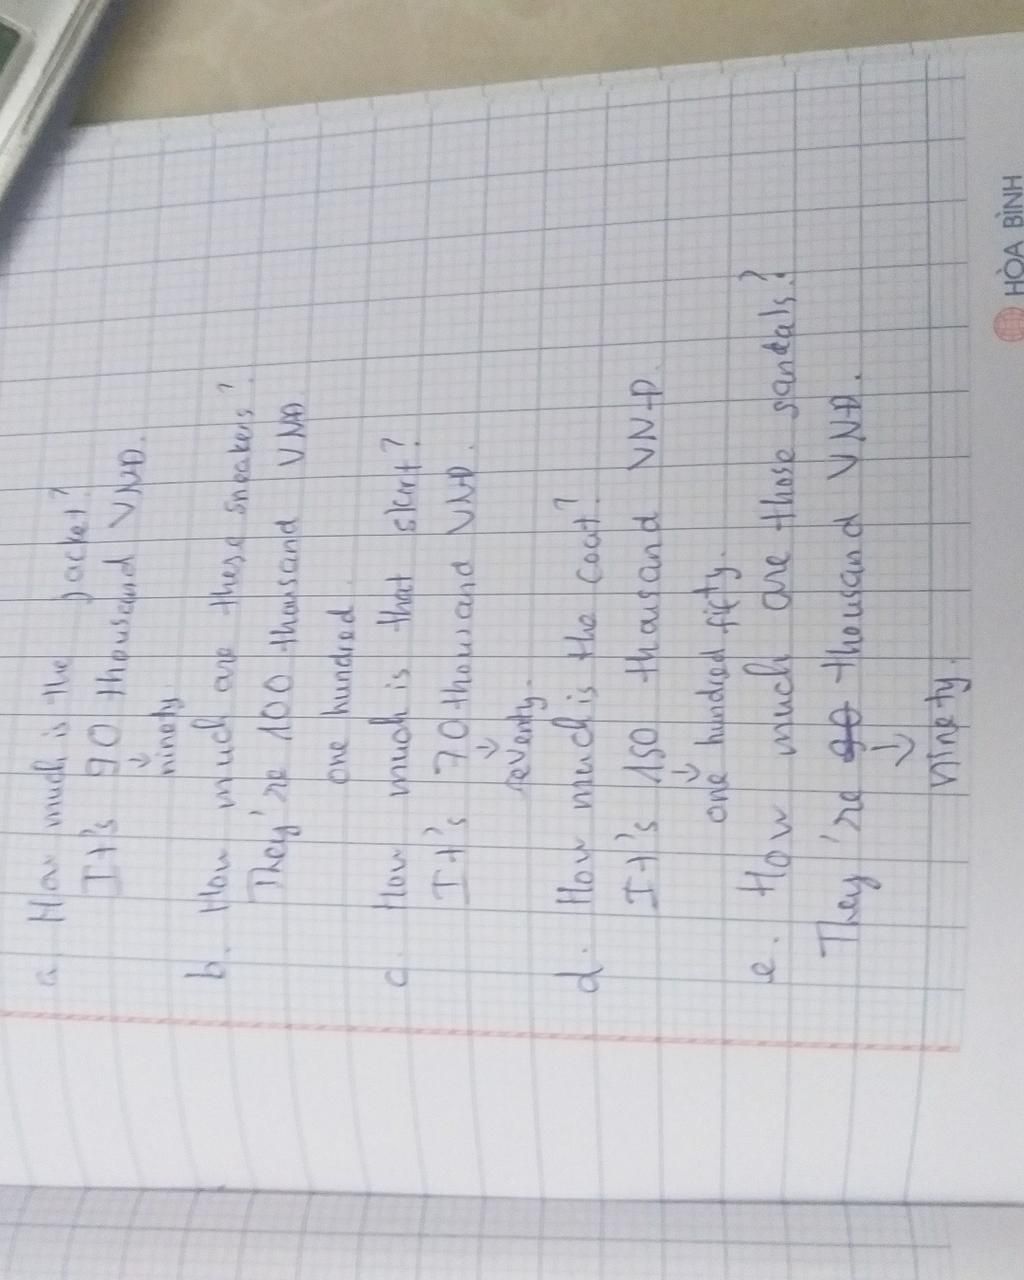 a. How much is the jacket?
It's 90 thousand VNĐ.
ninety
b. How much are these sneakers?
They're 100 thousand VNĐ
one hundred.
c. How much is that skirt?
It's 70 thousand VNĐ.
seventy.
d. How much is the coat?
It's 150 thousand VNĐ.
one hundred fifty.
e. How much are those sandals?
They're 90 thousand VNĐ.
ninety.
HÒA BÌNH